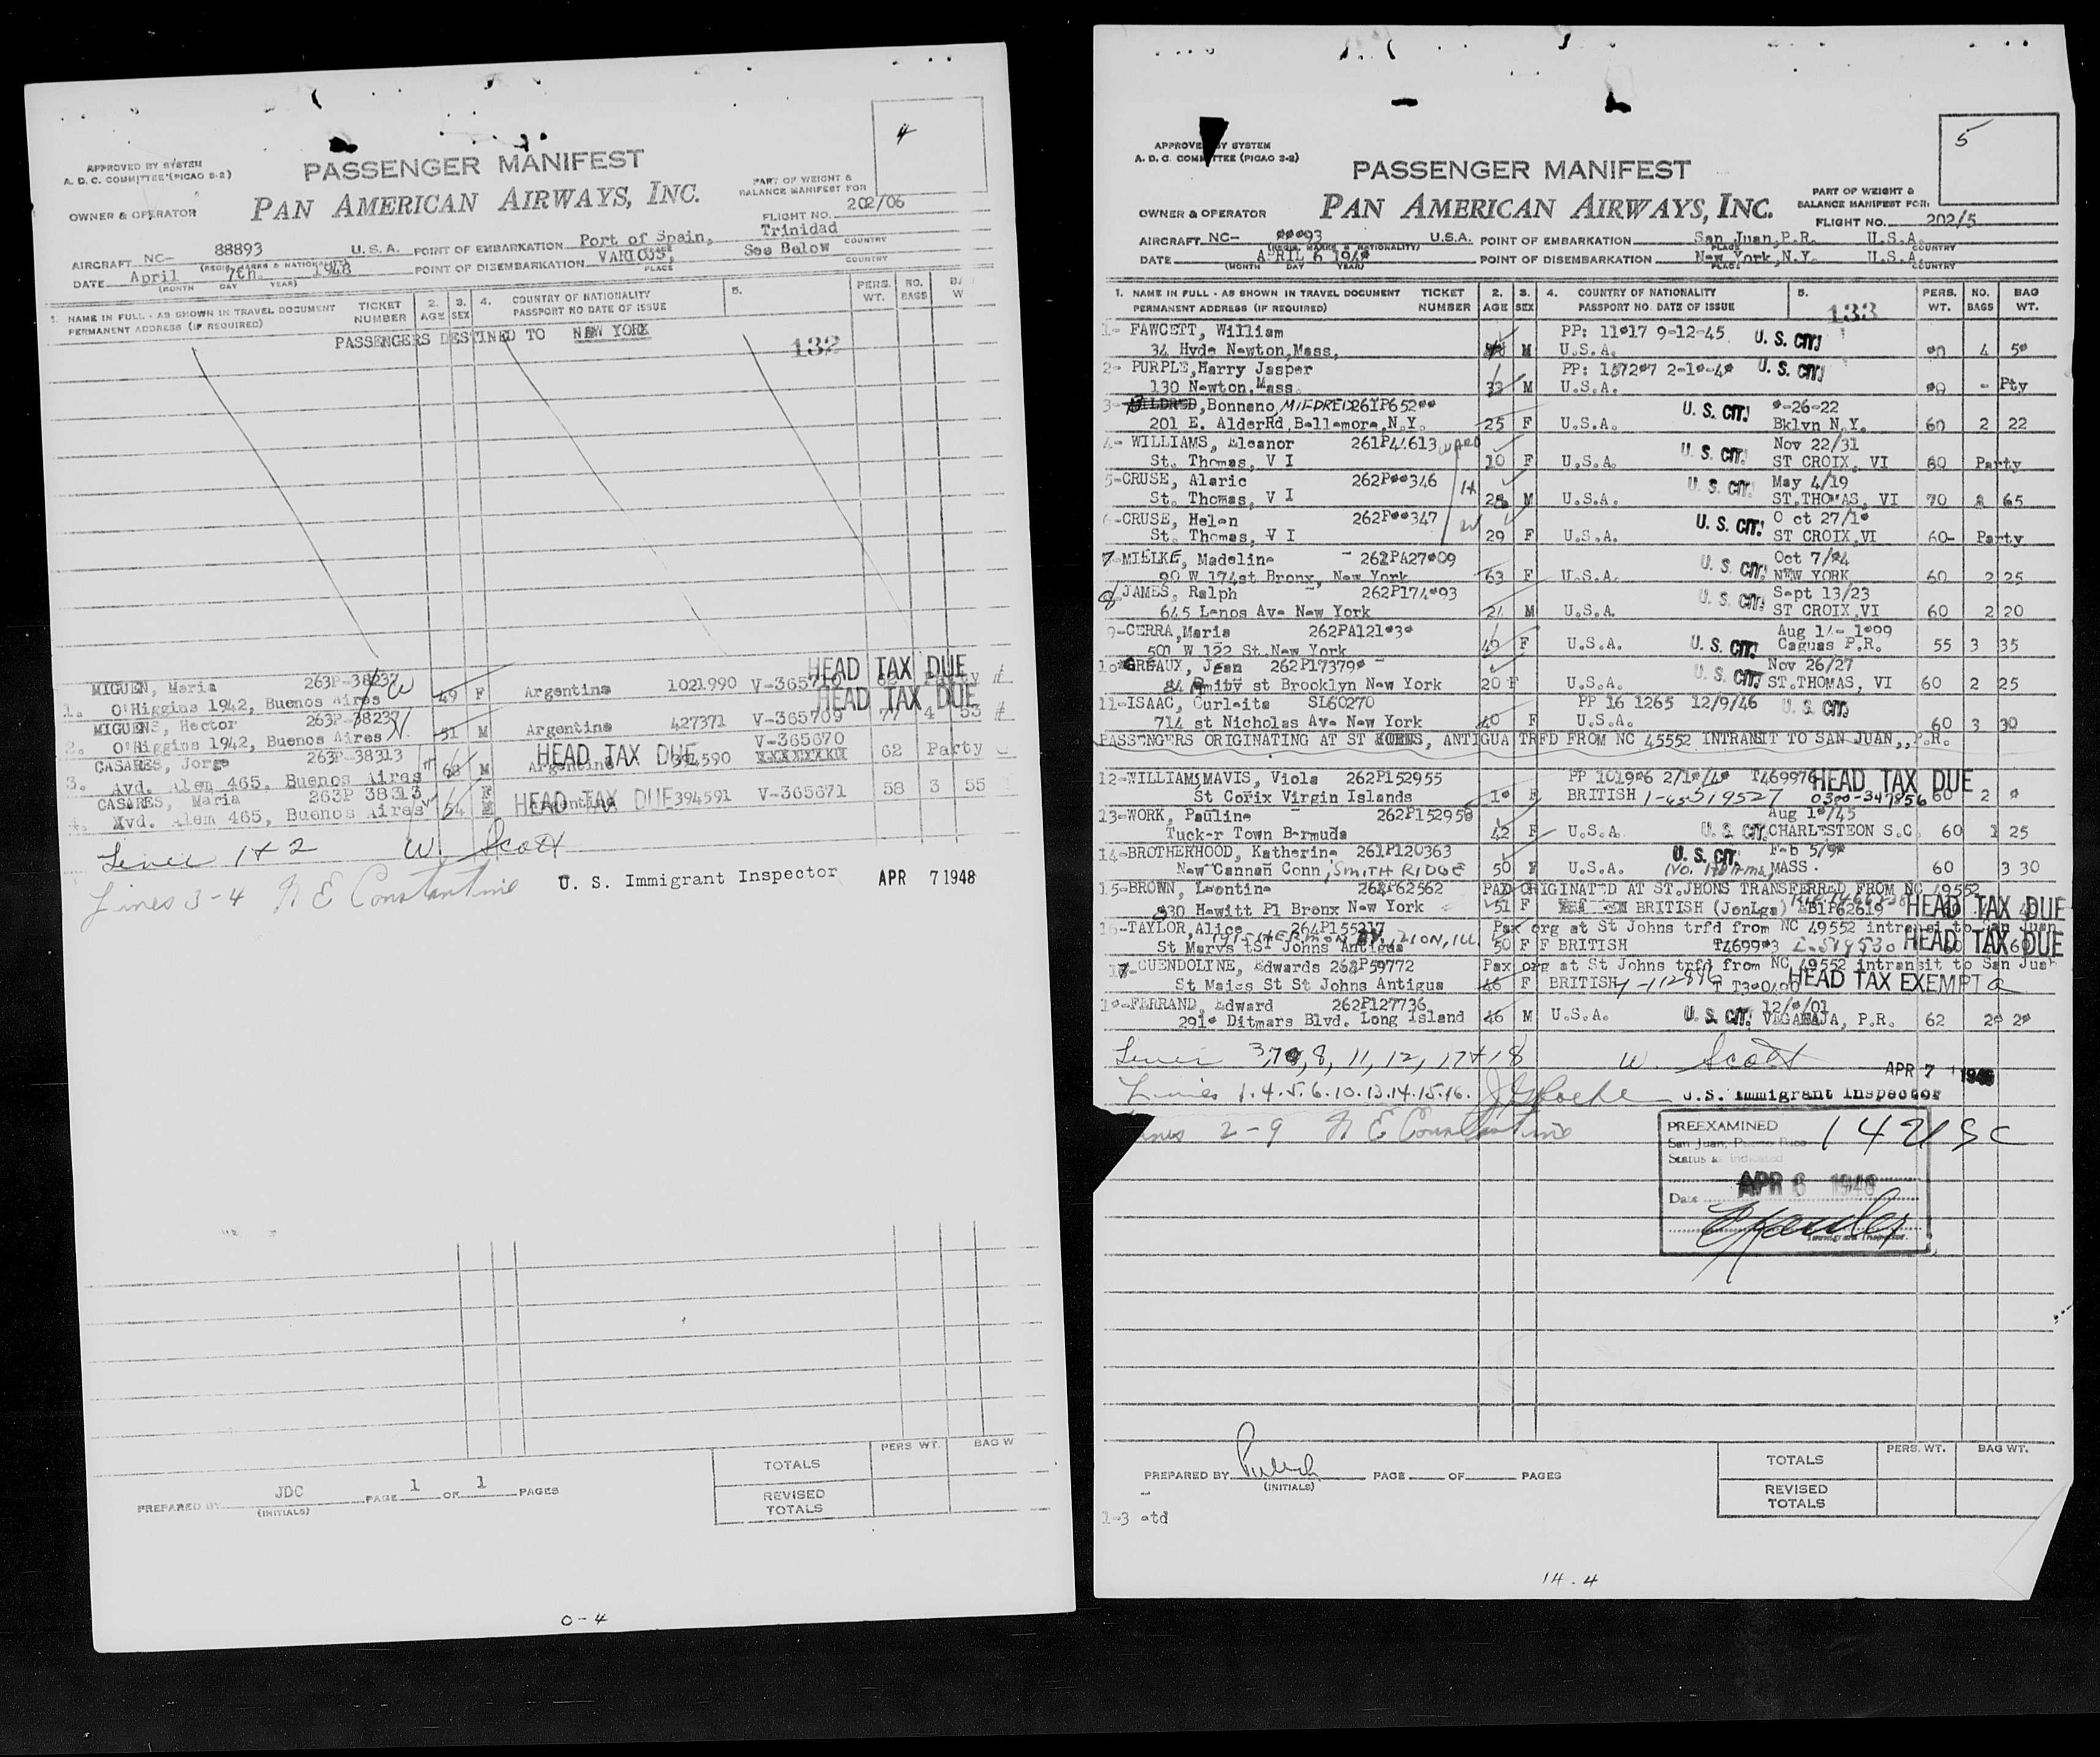 4
APPROVED BY SYSTEM
A. D. C. COMMITTEE (PICAO S-2)
PASSENGER MANIFEST
PAN AMERICAN AIRWAYS, INC.
PART OF WEIGHT &
BALANCE MANIFEST FOR
OWNER & OPERATOR
FLIGHT NO. 202/06
AIRCRAFT NC- 88893 U.S.A. POINT OF EMBARKATION Port of Spain, Trinidad
(REGIS. MARKS & NATIONALITY) COUNTRY
DATE April 7th. 1948 POINT OF DISEMBARKATION VARIOUS, See Below
(MONTH DAY YEAR) PLACE COUNTRY
1. NAME IN FULL - AS SHOWN IN TRAVEL DOCUMENT TICKET 2. 3. 4. COUNTRY OF NATIONALITY 5. PERS. NO.
PERMANENT ADDRESS (IF REQUIRED) NUMBER AGE SEX PASSPORT NO DATE OF ISSUE WT. BAGS W
PASSENGERS DESTINED TO NEW YORK
132
HEAD TAX DUE
MIGUEN, Maria 263P-38237 49 F Argentine 1021990 Party
1. O'Higgins 1942, Buenos Aires
HEAD TAX DUE
MIGUENS, Hector 263P-38237 51 M Argentine 427371 V-365709 77 4 53
2. O'Higgins 1942, Buenos Aires
V-365670
CASARES, Jorge 263P-38313 68 M Argentine HEAD TAX DUE 394590 62 Party
3. Avd. Alem 465, Buenos Aires
CASARES, Maria 263P 38313 54 F Argentine HEAD TAX DUE 394591 V-365671 58 3 55
4. Avd. Alem 465, Buenos Aires
Lines 1 + 2 W. Scott
Lines 3-4 N E Constantine U. S. Immigrant Inspector APR 7 1948
PERS WT. BAG W
TOTALS
PREPARED BY JDC PAGE 1 OF 1 PAGES
(INITIALS)
REVISED
TOTALS
0-4
5
APPROVED BY SYSTEM
A. D. C. COMMITTEE (PICAO S-2)
PASSENGER MANIFEST
PAN AMERICAN AIRWAYS, INC.
PART OF WEIGHT &
BALANCE MANIFEST FOR:
OWNER & OPERATOR
FLIGHT NO. 202/5
AIRCRAFT NC- U.S.A. POINT OF EMBARKATION San Juan,P.R. U.S.A.
(REGIS. MARKS & NATIONALITY) PLACE COUNTRY
DATE APRIL 6 POINT OF DISEMBARKATION New York,N.Y. U.S.A.
(MONTH DAY YEAR) PLACE COUNTRY
1. NAME IN FULL - AS SHOWN IN TRAVEL DOCUMENT TICKET 2. 3. 4. COUNTRY OF NATIONALITY 5. PERS. NO. BAG
PERMANENT ADDRESS (IF REQUIRED) NUMBER AGE SEX PASSPORT NO. DATE OF ISSUE WT. BAGS WT.
133
1- FAWCETT, William PP: 9-12-45 U. S. CIT.
34 Hyde Newton,Mass, M U.S.A. 4
2- PURPLE,Harry Jasper PP: U. S. CIT.
130 Newton,Mass. 33 M U.S.A. - Pty
3- Bonneno, MILDRED U. S. CIT. -26-22
201 E. AlderRd,Bellemore,N.Y. 25 F U.S.A. Bklyn N.Y. 60 2 22
4- WILLIAMS, Eleanor 261P44613 WARD U. S. CIT. Nov 22/31
St. Thomas, V I 10 F U.S.A. ST CROIX, VI 80 Party
5-CRUSE, Alaric U. S. CIT. May 4/19
St. Thomas, V I 28 M U.S.A. ST.THOMAS, VI 70 65
6-CRUSE, Helen U. S. CIT. Oct 27/1
St. Thomas, V I 29 F U.S.A. ST CROIX,VI 60- Party
7-MIELKE, Madeline U. S. CIT. Oct 7/
90 W 174st Bronx, New York 63 F U.S.A. NEW YORK 60 2 25
8 JAMES, Ralph U. S. CIT. Sept 13/23
645 Lenos Ave New York 24 M U.S.A. ST CROIX,VI 60 2 20
9-CERRA,Maria Aug
501 W 122 St New York 49 F U.S.A. U. S. CIT. Caguas P.R. 55 3 35
10 GREAUX, Jean U. S. CIT. Nov 26/27
84 Amity st Brooklyn New York 20 F U.S.A. ST.THOMAS, VI 60 2 25
11-ISAAC, Curleita SL60270 PP 16 1265 12/9/46 U. S. CIT.
714 st Nicholas Ave New York 40 F U.S.A. 60 3 30
PASSENGERS ORIGINATING AT ST JOHNS, ANTIGUA TRFD FROM NC 45552 INTRANSIT TO SAN JUAN,,P.R.
12-WILLIAMS MAVIS, Viola 262P152955 T469976 HEAD TAX DUE
St Corix Virgin Islands F BRITISH 0300-347856 60 2
13-WORK, Pauline Aug
Tucker Town Bermuda 42 F U.S.A. U. S. CIT. CHARLESTEON S.C. 60 1 25
14-BROTHERHOOD, Katherine 261P120363 U. S. CIT. Feb
New Cannan Conn, SMITH RIDGE 50 F U.S.A. MASS. 60 3 30
15-BROWN, Leontine 262P62562 PAX ORIGINATED AT ST.JHONS TRANSFERRED FROM NC 49552
830 Hewitt Pl Bronx New York 51 F BRITISH HEAD TAX DUE
16-TAYLOR,Alice 264P155217 Pax org at St Johns trfd from NC 49552 intransit to San Juan
St Marys St St Johns Antigua ZION, ILL 50 F F BRITISH HEAD TAX DUE
17-GUENDOLINE, Edwards 262P59772 Pax org at St Johns trfd from NC 49552 intransit to San Juan
St Maies St St Johns Antigua 46 F BRITISH HEAD TAX EXEMPT
FERRAND, Edward 262P127736
Ditmars Blvd. Long Island 46 M U.S.A. U. S. CIT. VEGABAJA, P.R. 62
Lines 3, 7, 8, 11, 12, 17 + 18 W. Scott APR 7 1948
Lines 1.4.5.6.10.13.14.15.16. U.S. Immigrant Inspector
Lines 2-9 N E Constantine
PREEXAMINED
San Juan, Puerto Rico
Status as indicated
Date APR 6 1948
Immigrant Inspector.
PERS. WT. BAG WT.
TOTALS
PREPARED BY PAGE OF PAGES
(INITIALS)
REVISED
TOTALS
1-3 std
14-4